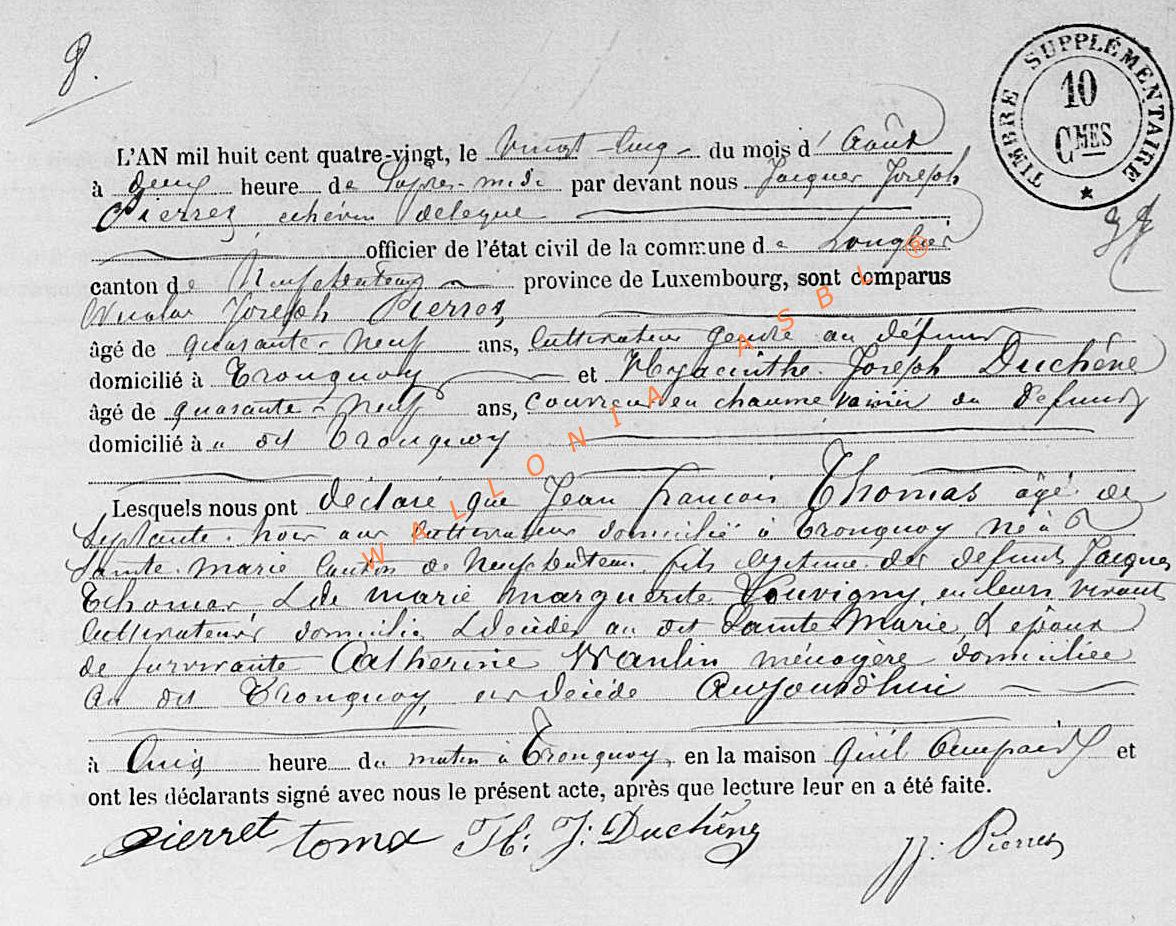 8.
TIMBRE SUPPLÉMENTAIRE
10
CMES
L'AN mil huit cent quatre-vingt, le vingt-cinq du mois d'Août
à deux heure de l'après-midi par devant nous Jacques Joseph
Pierret, échévin délégué
officier de l'état civil de la commune de Longlier
canton de Neufchâteau province de Luxembourg, sont comparus
Nicolas Joseph Pierret,
âgé de quarante-neuf ans, cultivateur gendre au défunt
domicilié à Tronquoy et Hyacinthe Joseph Duchêne
âgé de quarante-neuf ans, couvreur en chaume voisin du défunt
domicilié à au dit Tronquoy
Lesquels nous ont déclaré que Jean François Thomas âgé de
septante trois ans cultivateur domicilié à Tronquoy né à
Sainte Marie canton de Neufchâteau fils légitime des défunts Jacques
Thomas & de Marie Marguerite Louvigny, en leurs vivants
cultivateurs domiciliés & décédés au dit Sainte Marie, & époux
de survivante Catherine Wanlin ménagère domiciliée
au dit Tronquoy, est décédé aujourd'hui
à cinq heure du matin à Tronquoy, en la maison qu'il occupait et
ont les déclarants signé avec nous le présent acte, après que lecture leur en a été faite.
pierret toma H: J: Duchêne
JJ: Pierret
WALLONIA ASBL ®